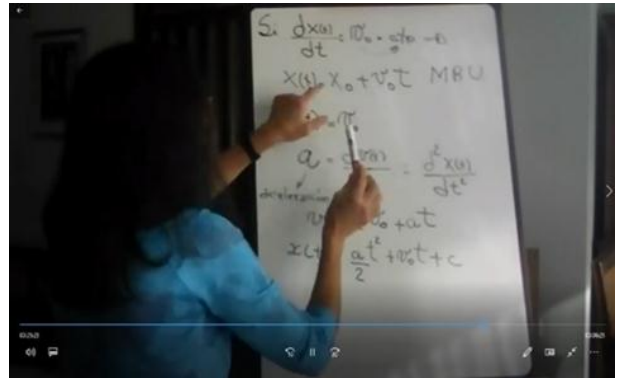 Si dx(t)/dt = v₀ = cte →
x(t) = x₀ + v₀t MRU
= v₀
a = dv(t)/ = d²x(t)/dt²
aceleracion
v₀ + at
x(t a/2 t² + v₀t + c